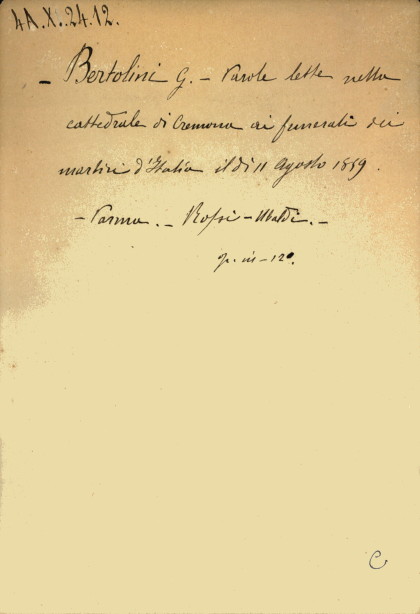 4A.X.24.12.
- Bertolini G. - Parole lette nella
cattedrale di Cremona ai funerali dei
martiri d'Italia il dì 11 Agosto 1859.
- Parma. - Rossi-Ubaldi. -
in-12°.
C